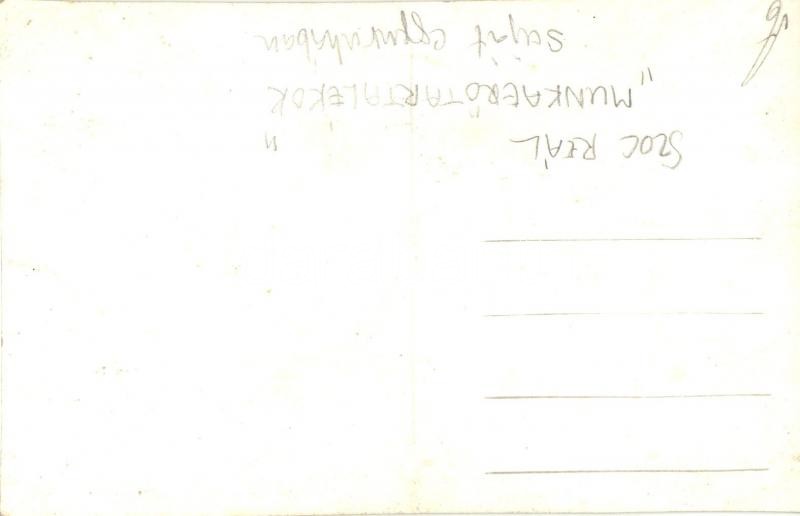 SZOC REÁL
„MUNKAERŐTARTALÉKOK"
saját egyenruhában